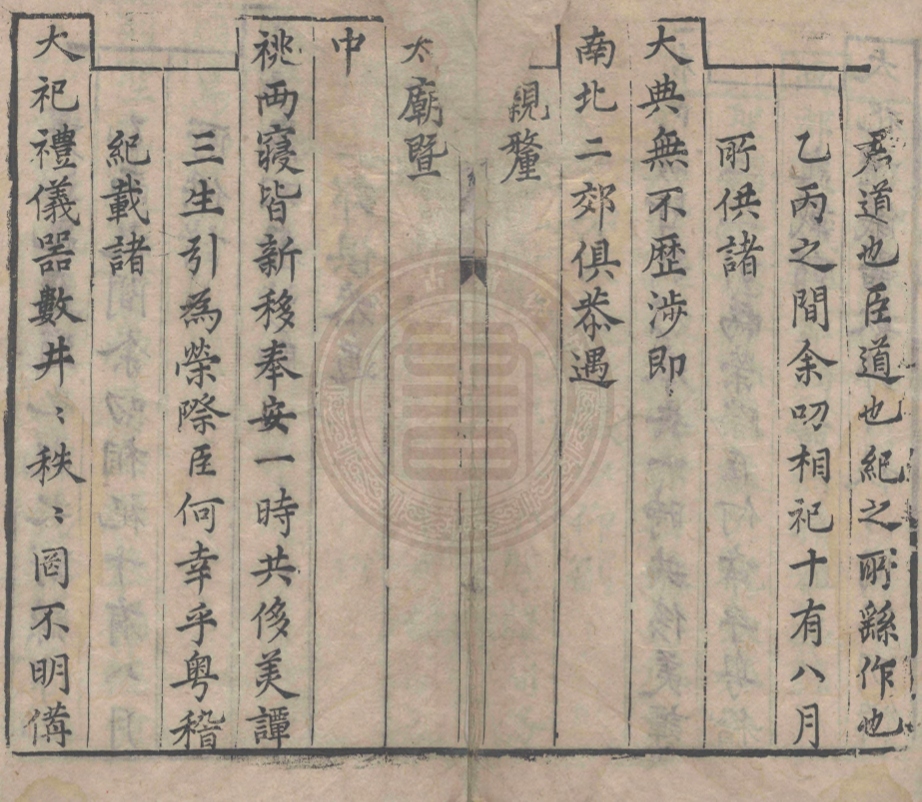 君道也臣道也紀之所繇作也
乙丙之間余叨相祀十有八月
所供諸
大典無不歷涉即
南北二郊俱恭遇
親釐
太廟暨
中
祧兩寢皆新移奉安一時共侈美譚
三生引為榮際臣何幸乎粵稽
紀載諸
大祀禮儀器數井〻秩〻罔不明偹